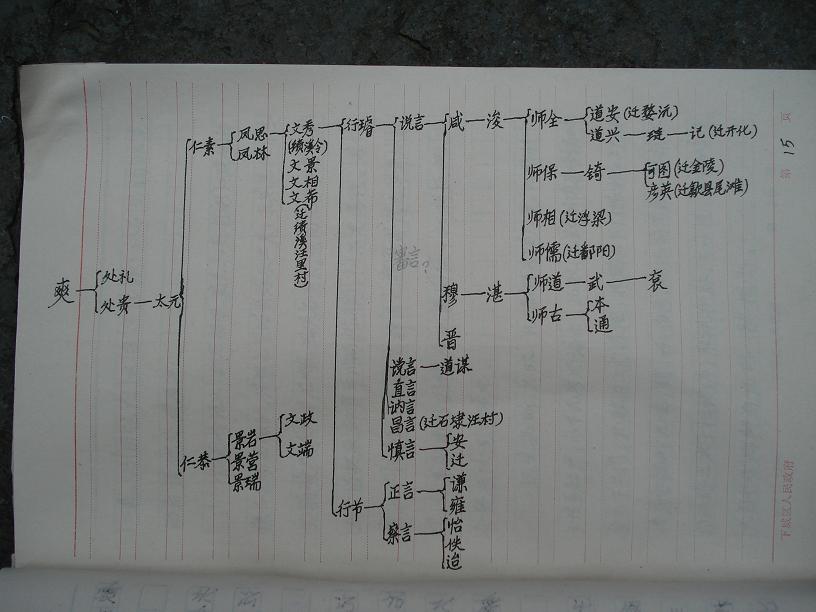 第 15 页
爽
处礼
处贵
太元
仁素
仁恭
凤思
凤林
景岩
景营
景瑞
文秀
(绩溪令)
文景
文相
文希
(迁绩溪汪里村)
文政
文端
行璿
行节
说言
咸
浚
师全
道安(迁婺沅)
道兴
琎
记(迁开化)
师保
锜
可图(迁金陵)
彦英(迁歙县尾滩)
师相(迁浮梁)
师儒(迁鄱阳)
穆
湛
师道
武
衮
师古
本
通
晋
谠言
道谋
直言
讷言
昌言(迁石埭汪村)
慎言
安
迁
正言
谦
雍
察言
怡
佚
迨
下城区人民政府